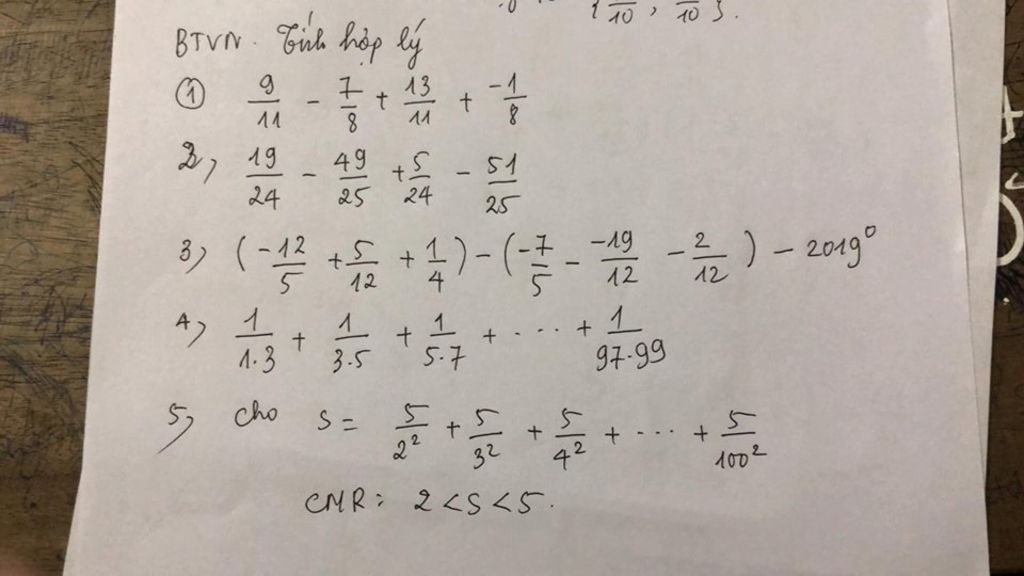 { /10 , /10 }.
BTVN. Tính hợp lý
① 9/11 - 7/8 + 13/11 + -1/8
2, 19/24 - 49/25 + 5/24 - 51/25
3, (-12/5 + 5/12 + 1/4) - (-7/5 - -19/12 - 2/12) - 2019⁰
4, 1/1.3 + 1/3.5 + 1/5.7 + .... + 1/97.99
5, Cho S = 5/2² + 5/3² + 5/4² + ... + 5/100²
CMR: 2 < S < 5.